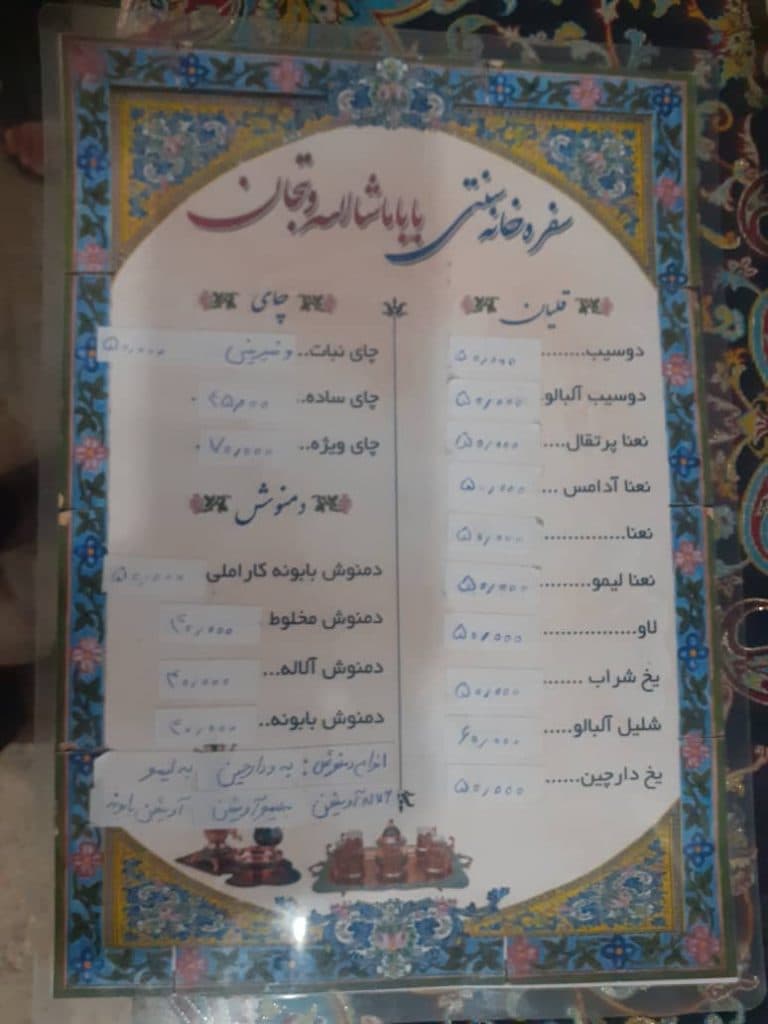 سفره خانه سنتی بابا ماشالله ونجان
قلیان
دوسیب........ ۵۰٫۰۰۰
دوسیب آلبالو. ۵۰٫۰۰۰
نعنا پرتقال.... ۵۰٫۰۰۰
نعنا آدامس ... ۵۰٫۰۰۰
نعنا.............. ۵۰٫۰۰۰
نعنا لیمو......... ۵۰٫۰۰۰
لاو................ ۵۰٫۰۰۰
یخ شراب ....... ۵۰٫۰۰۰
شلیل آلبالو..... ۶۰٫۰۰۰
یخ دارچین...... ۵۰٫۰۰۰
چای
چای نبات.. و شیرینی ۵۰٫۰۰۰
چای ساده..
چای ویژه.. ۷۰٫۰۰۰
دمنوش
دمنوش بابونه کاراملی ۵۰٫۰۰۰
دمنوش مخلوط ۴۰٫۰۰۰
دمنوش آلاله... ۴۰٫۰۰۰
دمنوش بابونه.. ۴۰٫۰۰۰
انواع دمنوش : به دارچین به لیمو
آویشن آویشن آویشن بابونه